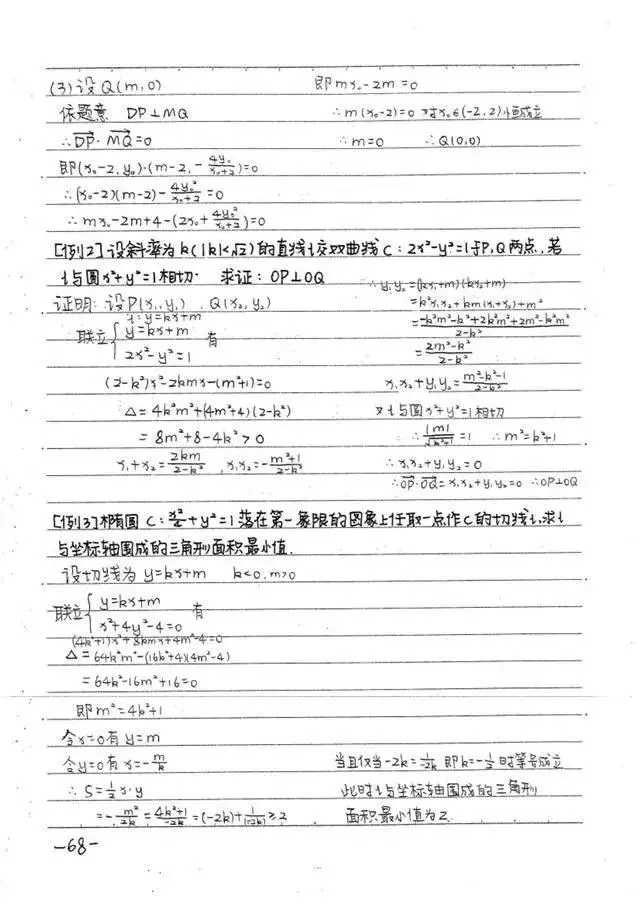 (3)设Q(m,0)
依题意 DP⊥MQ
∴DP·MQ=0
即(x₀-2,y₀)·(m-2,-4y₀/(x₀+2))=0
∴(x₀-2)(m-2)-4y₀²/(x₀+2)=0
∴mx₀-2m+4-(2x₀+4y₀²/(x₀+2))=0
即mx₀-2m=0
∴m(x₀-2)=0 对x₀∈(-2,2)恒成立
∴m=0 ∴Q(0,0)
[例2]设斜率为k(|k|<√2)的直线l交双曲线C:2x²-y²=1于P,Q两点,若
l与圆x²+y²=1相切. 求证:OP⊥OQ
证明:设P(x₁,y₁),Q(x₂,y₂)
l:y=kx+m
联立{y=kx+m
2x²-y²=1 有
(2-k²)x²-2kmx-(m²+1)=0
Δ=4k²m²+(4m²+4)(2-k²)
=8m²+8-4k²>0
x₁+x₂=2km/(2-k²), x₁x₂=-(m²+1)/(2-k²)
∴y₁y₂=(kx₁+m)(kx₂+m)
=k²x₁x₂+km(x₁+x₂)+m²
=(-k²m²-k²+2k²m²+2m²-k²m²)/(2-k²)
=(2m²-k²)/(2-k²)
x₁x₂+y₁y₂=(m²-k²-1)/(2-k²)
又l与圆x²+y²=1相切
∴|m|/√(k²+1)=1 ∴m²=k²+1
∴x₁x₂+y₁y₂=0
∴OP·OQ=x₁x₂+y₁y₂=0 ∴OP⊥OQ
[例3]椭圆C:x²/4+y²=1落在第一象限的图象上任取一点作C的切线l,求l
与坐标轴围成的三角形面积最小值.
设切线为y=kx+m k<0,m>0
联立{y=kx+m
x²+4y²-4=0 有
(4k²+1)x²+8kmx+4m²-4=0
Δ=64k²m²-(16k²+4)(4m²-4)
=64k²-16m²+16=0
即m²=4k²+1
令x=0有y=m
令y=0有x=-m/k
∴S=1/2x·y
=-m²/2k=(4k²+1)/-2k=(-2k)+1/(-2k)≥2
当且仅当-2k=1/-2k即k=-1/2时等号成立
此时l与坐标轴围成的三角形
面积最小值为2.
-68-